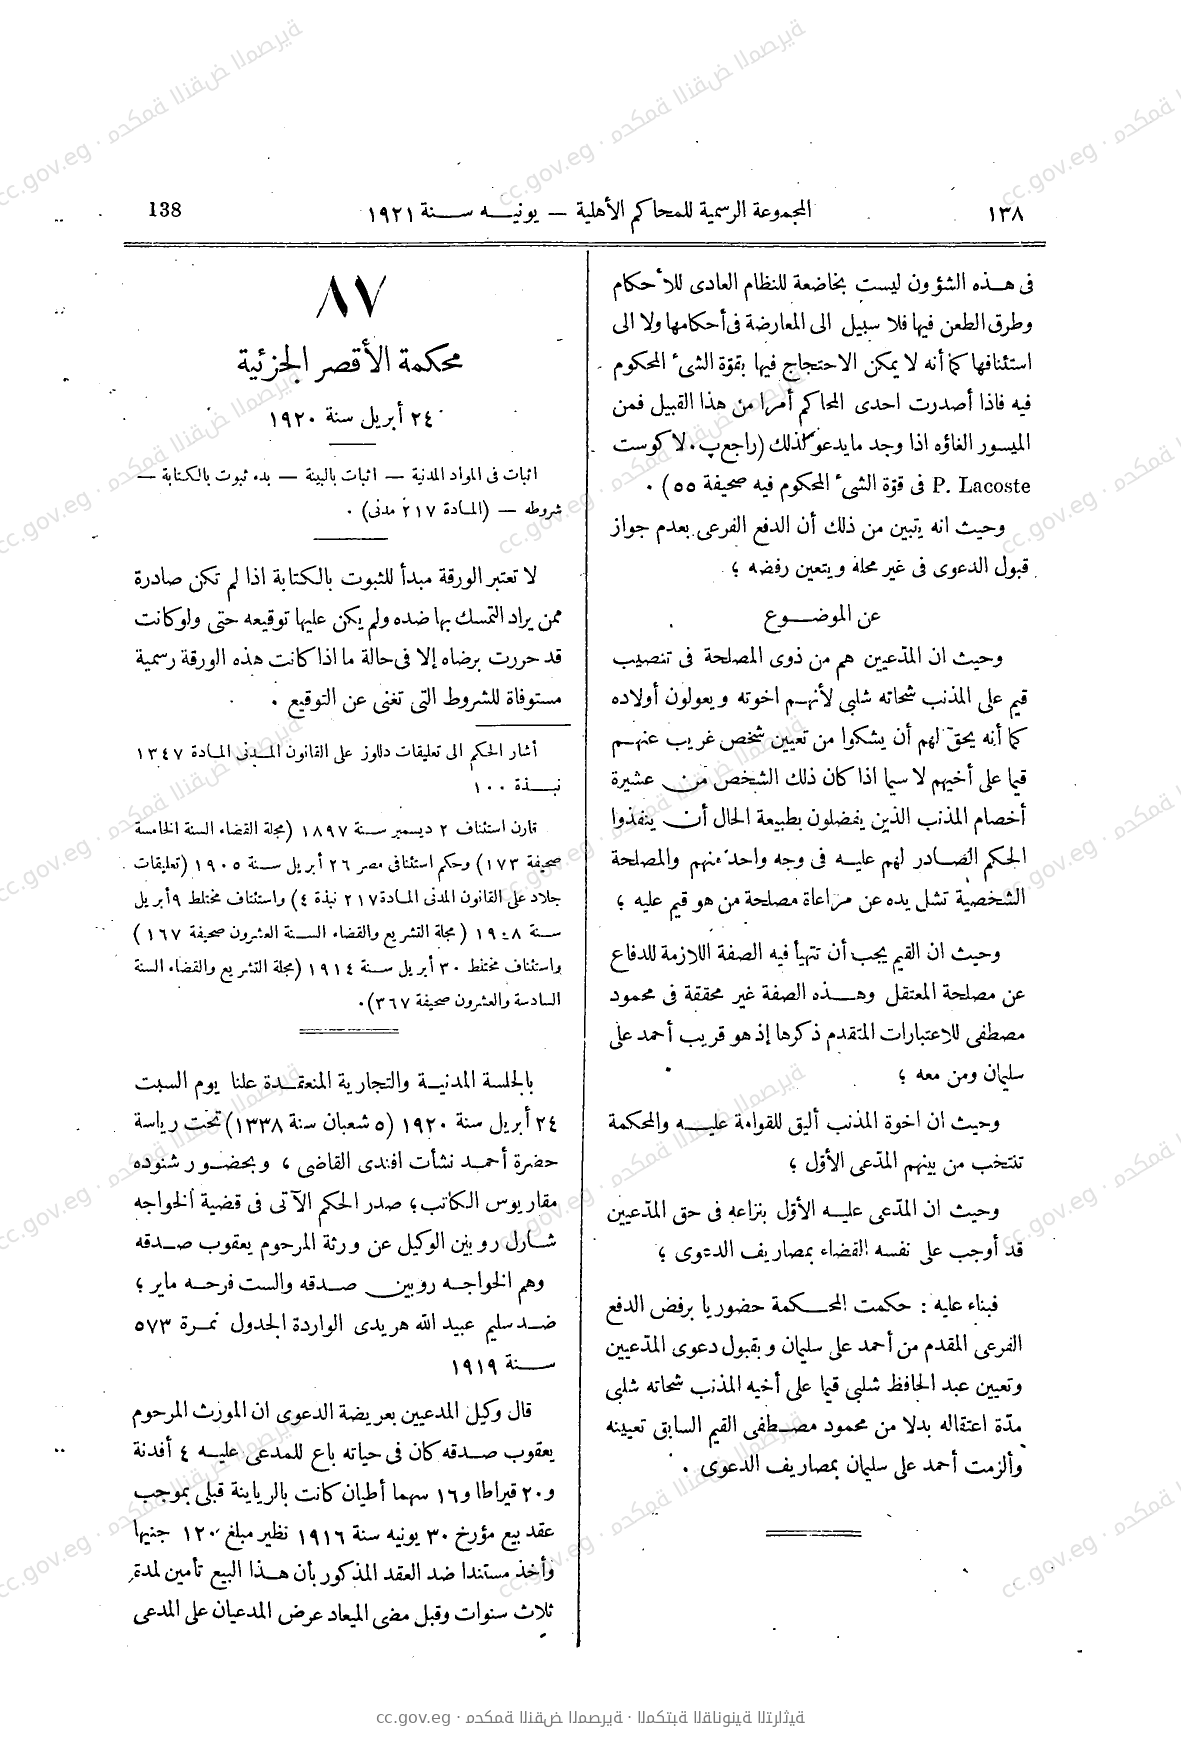 ١٣٨ المجموعة الرسمية للمحاكم الأهلية — يونيه سنة ١٩٢١ 138
فى هذه الشؤون ليست بخاضعة للنظام العادى للأحكام
وطرق الطعن فيها فلا سبيل الى المعارضة فى أحكامها ولا الى
استئنافها كما أنه لا يمكن الاحتجاج فيها بقوّة الشىء المحكوم
فيه فاذا أصدرت احدى المحاكم أمرا من هذا القبيل فمن
الميسور الغاؤه اذا وجد ما يدعو لذلك (راجع پ. لاكوست
P. Lacoste فى قوّة الشىء المحكوم فيه صحيفة ٥٥) ٠
وحيث انه يتبين من ذلك أن الدفع الفرعى بعدم جواز
قبول الدعوى فى غير محله ويتعين رفضه ؛
عن الموضوع
وحيث ان المدّعيين هم من ذوى المصلحة فى تنصيب
قيم على المذنب شحاته شلبى لأنهم اخوته ويعولون أولاده
كما أنه يحقّ لهم أن يشكوا من تعيين شخص غريب عنهم
قيما على أخيهم لا سيما اذا كان ذلك الشخص من عشيرة
أخصام المذنب الذين يفضلون بطبيعة الحال أن ينفذوا
الحكم الصادر لهم عليه فى وجه واحد منهم والمصلحة
الشخصية تشل يده عن مراعاة مصلحة من هو قيم عليه ؛
وحيث ان القيم يجب أن تتهيأ فيه الصفة اللازمة للدفاع
عن مصلحة المعتقل وهذه الصفة غير محققة فى محمود
مصطفى للاعتبارات المتقدم ذكرها إذ هو قريب أحمد على
سليمان ومن معه ؛
وحيث ان اخوة المذنب أليق للقوامة عليه والمحكمة
تنتخب من بينهم المدّعى الأوّل ؛
وحيث ان المدّعى عليه الأوّل بنزاعه فى حق المدّعيين
قد أوجب على نفسه القضاء بمصاريف الدعوى ؛
فبناء عليه : حكمت المحكمة حضوريا برفض الدفع
الفرعى المقدم من أحمد على سليمان وبقبول دعوى المدّعيين
وتعيين عبد الحافظ شلبى قيما على أخيه المذنب شحاته شلبى
مدّة اعتقاله بدلا من محمود مصطفى القيم السابق تعيينه
وألزمت أحمد على سليمان بمصاريف الدعوى ٠
٨٧
محكمة الأقصر الجزئية
٢٤ أبريل سنة ١٩٢٠
اثبات فى المواد المدنية — اثبات بالبينة — بدء ثبوت بالكتابة —
شروطه — (المادة ٢١٧ مدنى) ٠
لا تعتبر الورقة مبدأ للثبوت بالكتابة اذا لم تكن صادرة
ممن يراد التمسك بها ضده ولم يكن عليها توقيعه حتى ولو كانت
قد حررت برضاه إلا فى حالة ما اذا كانت هذه الورقة رسمية
مستوفاة للشروط التى تغنى عن التوقيع ٠
أشار الحكم الى تعليقات دللوز على القانون المدنى المادة ١٣٤٧
نبذة ١٠٠
قارن استئناف ٢ ديسمبر سنة ١٨٩٧ (مجلة القضاء السنة الخامسة
صحيفة ١٧٣) وحكم استئنافى مصر ٢٦ أبريل سنة ١٩٠٥ (تعليقات
جلاد على القانون المدنى المادة ٢١٧ نبذة ٤) واستئناف مختلط ٩ أبريل
سنة ١٩٠٨ (مجلة التشريع والقضاء السنة العشرون صحيفة ١٦٧)
واستئناف مختلط ٣٠ أبريل سنة ١٩١٤ (مجلة التشريع والقضاء السنة
السادسة والعشرون صحيفة ٣٦٧)٠
بالجلسة المدنية والتجارية المنعقدة علنا يوم السبت
٢٤ أبريل سنة ١٩٢٠ (٥ شعبان سنة ١٣٣٨) تحت رياسة
حضرة أحمد نشأت افندى القاضى ، وبحضور شنوده
مقاريوس الكاتب ؛ صدر الحكم الآتى فى قضية الخواجه
شارل روبين الوكيل عن ورثة المرحوم يعقوب صدقه
وهم الخواجه روبين صدقه والست فرحه ماير ؛
ضد سليم عبيد الله هريدى الواردة الجدول نمرة ٥٧٣
سنة ١٩١٩
قال وكيل المدعيين بعريضة الدعوى ان المورث المرحوم
يعقوب صدقه كان فى حياته باع للمدعى عليه ٤ أفدنة
و٢٠ قيراطا و١٦ سهما أطيان كانت بالرياينة قبلى بموجب
عقد بيع مؤرخ ٣٠ يونيه سنة ١٩١٦ نظير مبلغ ١٢٠ جنيها
وأخذ مستندا ضد العقد المذكور بأن هذا البيع تأمين لمدة
ثلاث سنوات وقبل مضى الميعاد عرض المدعيان على المدعى
cc.gov.eg · محكمة النقض المصرية · المكتبة القانونية التراثية